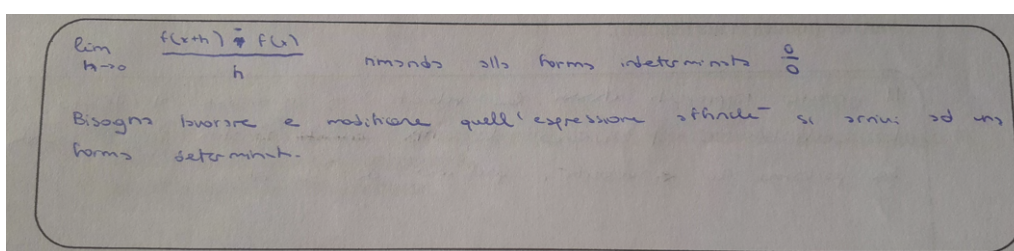 lim h→0 f(x+h) - f(x) / h rimanda alla forma indeterminata 0/0
Bisogna lavorare e modificare quell'espressione affinché si arrivi ad una
forma determinata.